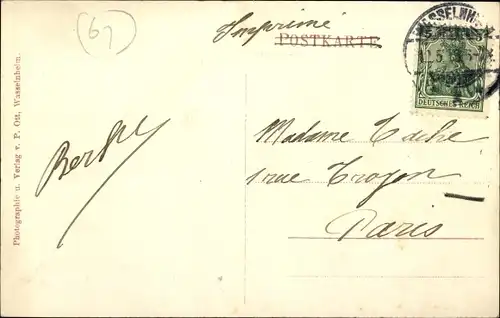 (67)
Imprimé
POSTKARTE
WASSELNHEIM
DEUTSCHES REICH
Photographie u. Verlag v. P. Ott, Wasselnheim.
Madame Tache
1 rue Troyon
Paris